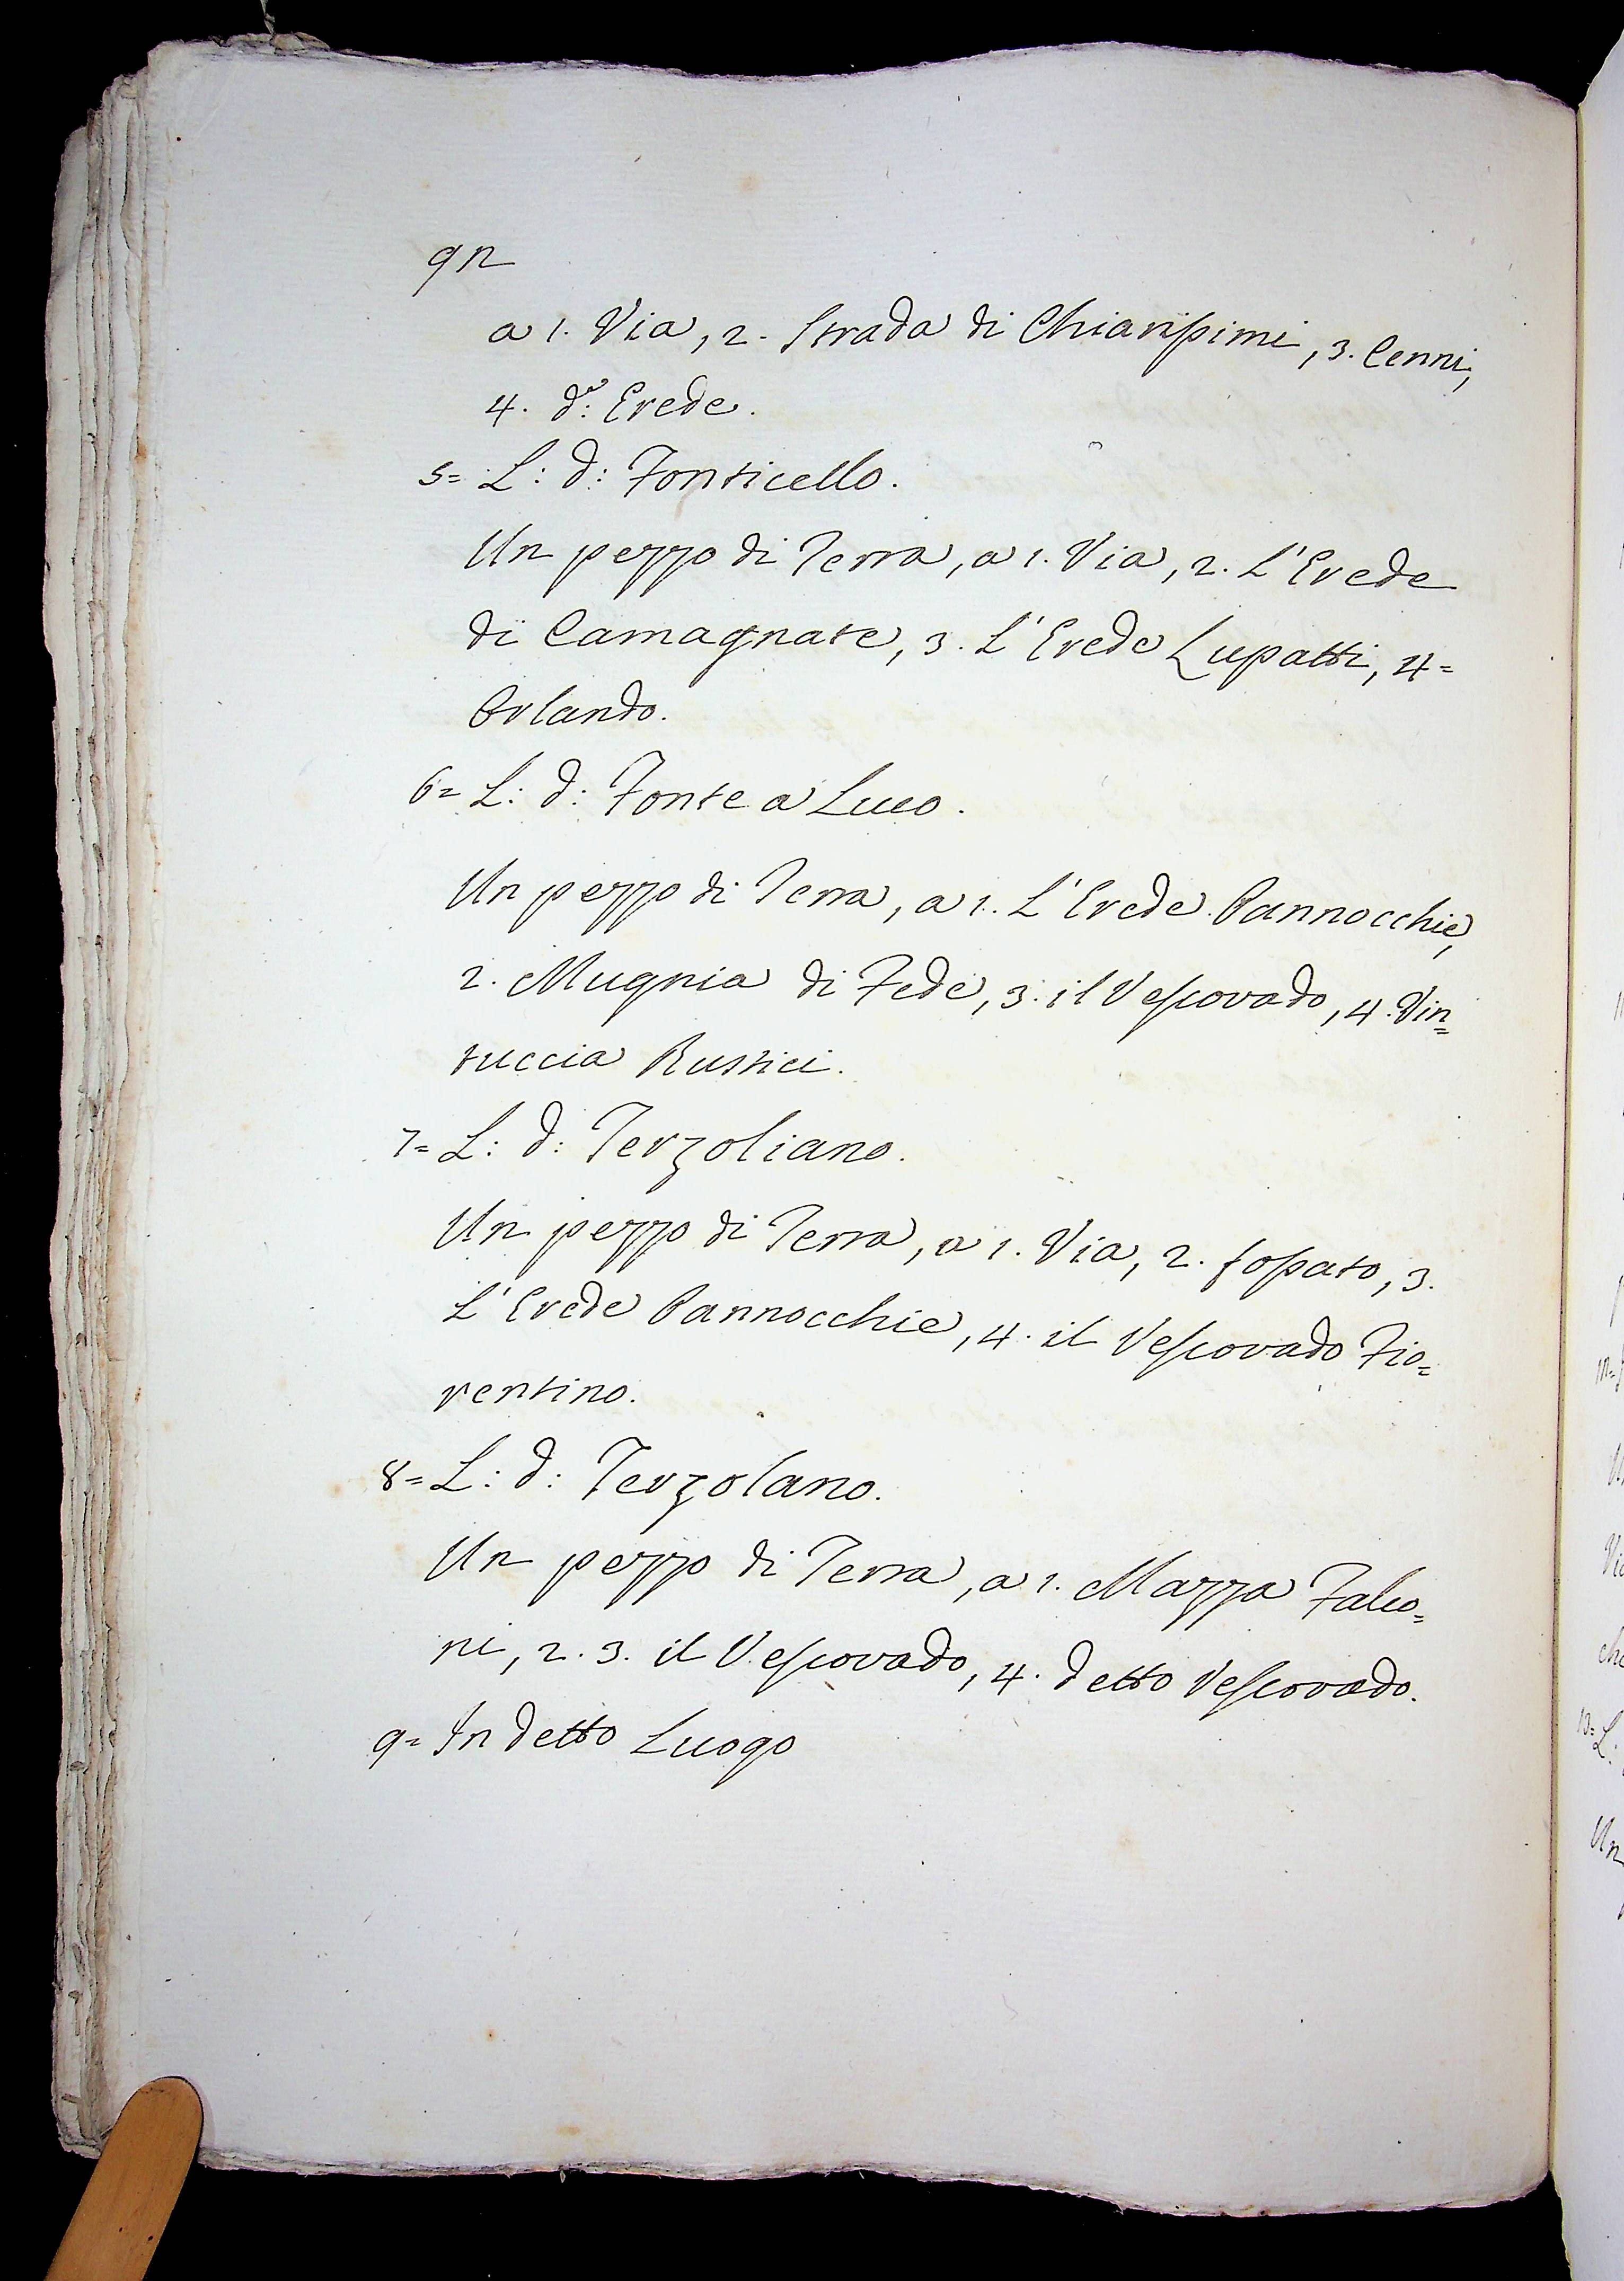 92
a 1. Via, 2. Strada di Chiarissimi, 3. Cenni,
4. d.º: Erede.
5= L: d: Fonticello.
Un pezzo di Terra, a 1. Via, 2. L'Erede
di Camagnate, 3. L'Erede Lupatti, 4=
Orlando.
6= L: d: Fonte a Luco.
Un pezzo di Terra, a 1. L'Erede Pannocchie,
2. Mugnia di Fede, 3. il Vescovado, 4. Vin=
tuccia Rustici.
7= L: d: Terzoliano.
Un pezzo di Terra, a 1. Via, 2. fossato, 3.
L'Erede Pannocchie, 4. il Vescovado Fio=
rentino.
8= L: d: Terzolano.
Un pezzo di Terra, a 1. Mazza Falco=
ni, 2. 3. il Vescovado, 4. detto Vescovado.
9= In detto Luogo